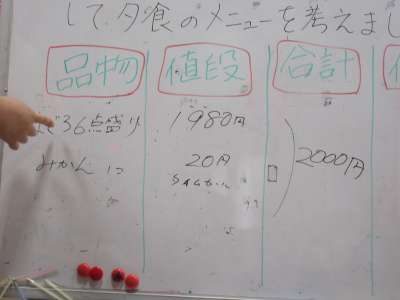 して夕食のメニューを考えまし
品物 値段 合計
36点盛り 1980円
みかん 20円 2000円